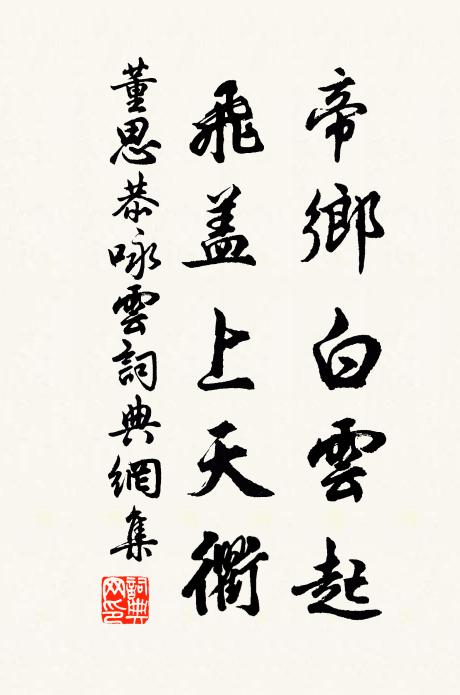 帝鄉白雲起
飛盖上天衢
董思恭咏雲詞典網集
詞典网印